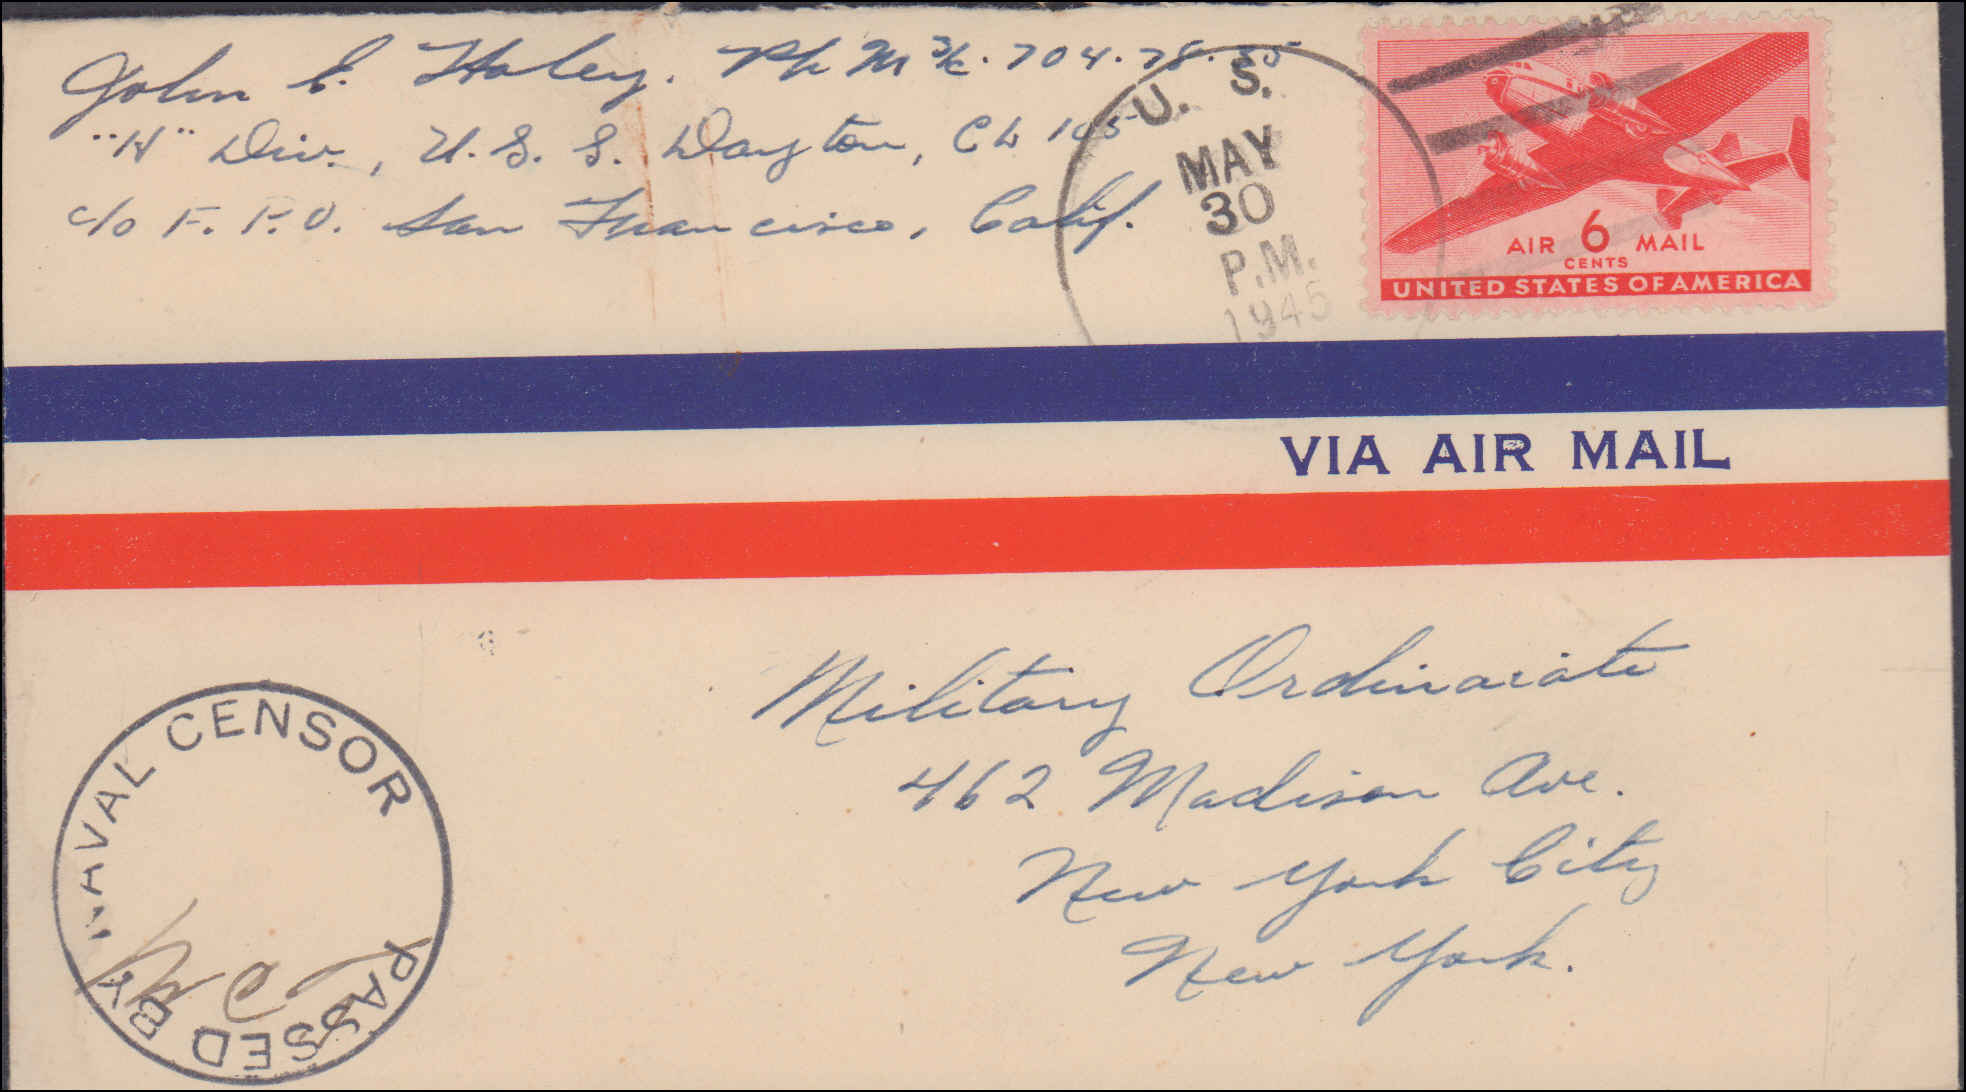 John E. Haley. Ph M 3/c. 704.78.55
"H" Div., U.S.S. Dayton, CL 105
c/o F.P.O. San Francisco, Calif.
U. S.
MAY
30
P.M.
1945
AIR 6 MAIL
CENTS
UNITED STATES OF AMERICA
VIA AIR MAIL
Military Ordinariate
462 Madison Ave.
New York City
New York.
PASSED BY NAVAL CENSOR